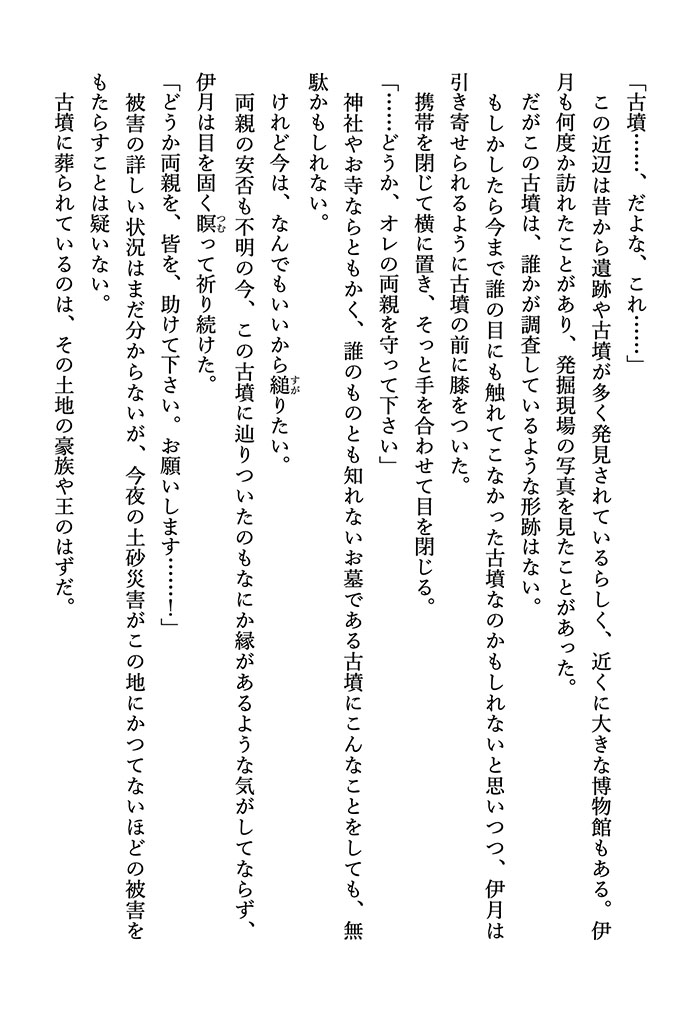 「古墳……、だよな、これ……」
　この近辺は昔から遺跡や古墳が多く発見されているらしく、近くに大きな博物館もある。伊
月も何度か訪れたことがあり、発掘現場の写真を見たことがあった。
　だがこの古墳は、誰かが調査しているような形跡はない。
　もしかしたら今まで誰の目にも触れてこなかった古墳なのかもしれないと思いつつ、伊月は
引き寄せられるように古墳の前に膝をついた。
　携帯を閉じて横に置き、そっと手を合わせて目を閉じる。
「……どうか、オレの両親を守って下さい」
　神社やお寺ならともかく、誰のものとも知れないお墓である古墳にこんなことをしても、無
駄かもしれない。
　けれど今は、なんでもいいから縋すがりたい。
　両親の安否も不明の今、この古墳に辿りついたのもなにか縁があるような気がしてならず、
伊月は目を固く瞑つむって祈り続けた。
「どうか両親を、皆を、助けて下さい。お願いします……！」
　被害の詳しい状況はまだ分からないが、今夜の土砂災害がこの地にかつてないほどの被害を
もたらすことは疑いない。
　古墳に葬られているのは、その土地の豪族や王のはずだ。